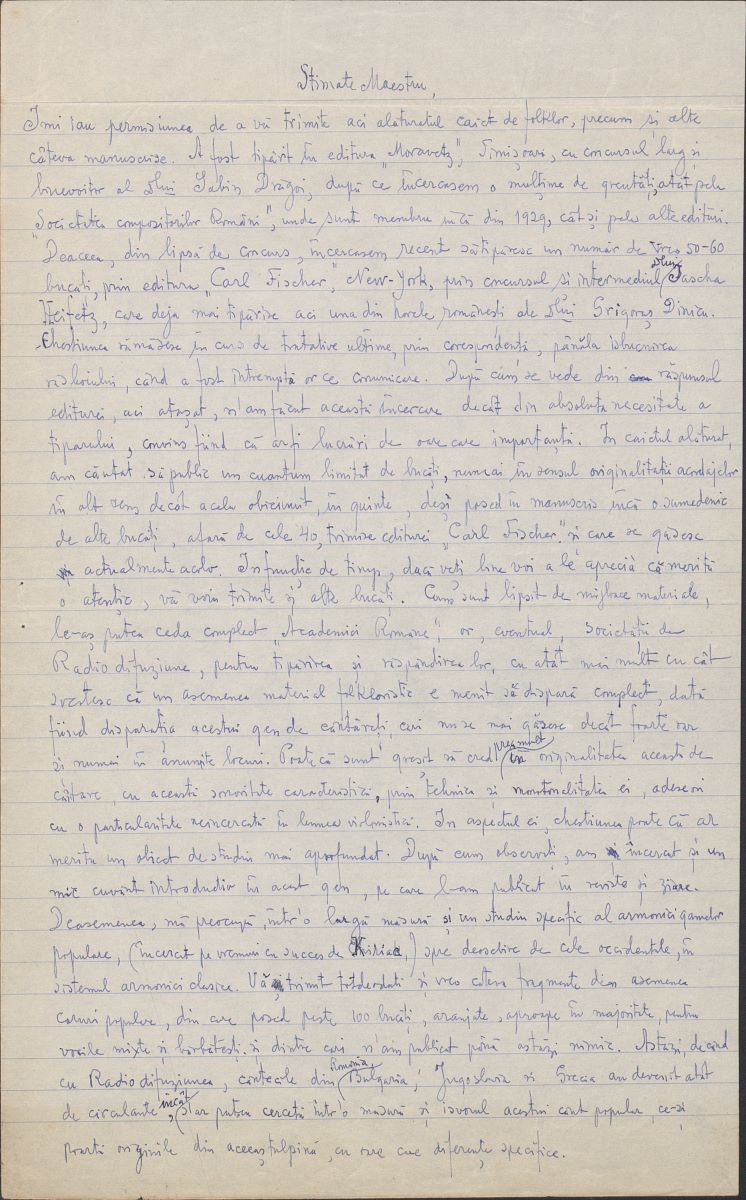 Stimate Maestru,
Imi iau permisiunea de a vă trimite aci alăturatul caiet de folklor, precum și alte
câteva manuscrise. A fost tipărit în editura "Moravetz", Timișoara, cu concursul larg și
binevoitor al Dlui Sabin Drăgoi, după ce încercasem o mulțime de greutăți, atât pela
"Societatea compozitorilor Români", unde sunt membru încă din 1929, cât și pela alte edituri.
Deaceea, din lipsă de concurs, încercasem recent să tipăresc un număr de vreo 50-60
bucăți, prin editura "Carl Fischer", New-York, prin concursul și intermediul Dlui Jascha
Heifetz, care deja mai tipărise aci una din horele românești ale Dlui Grigoraș Dinicu.
Chestiunea rămăsese în curs de tratative ultime, prin corespondență, pânăla isbucnirea
răsboiului, când a fost întreruptă or ce comunicare. După cum se vede din răspunsul
editurei, aci atașat, n'am făcut această încercare decât din absoluta necesitate a
tiparului, convins fiind că ar fi lucrări de oare care importanță. In caietul alăturat,
am căutat să public un cuantum limitat de bucăți, numai în sensul originalității acordajelor
în alt sens decât acela obicinuit, în quinte, deși posed în manuscris încă o sumedenie
de alte bucăți, afară de cele 40, trimise editurei "Carl Fischer" și care se găsesc
actualmente acolo. In funcție de timp, dacă veți bine voi a le aprecià că merită
o atenție, vă voiu trimite și alte bucăți. Cum sunt lipsit de mijloace materiale,
le-aș putea ceda complect "Academiei Române", or, eventual, societății de
Radiodifuziune, pentru tipărirea și răspândirea lor, cu atât mai mult cu cât
socotesc că un asemenea material folkloristic e menit să dispară complect, dată
fiind dispariția acestui gen de cântăreți, cari nu se mai găsesc decât foarte rar
și numai în anumite locuri. Poate că sunt greșit să cred prea mult în originalitatea aceasta de
cântare, cu această sonoritate caracteristică, prin tehnica și monotonalitatea ei, adeseori
cu o particularitate neincercată în lumea violonistică. In aspectul ei, chestiunea poate că ar
merita un obiect de studiu mai aprofundat. După cum observați, am încercat și un
mic cuvânt introductiv în acest gen, pe care l-am publicat în reviste și ziare.
Deasemenea, mă preocupă, într'o largă măsură și un studiu specific al armoniei gamelor
populare, (încercat pe vremuri cu succes de Kiriac,) spre deosebire de cele occidentale, în
sistemul armoniei clasice. Vă trimit totdeodată și vreo câteva fragmente din asemenea
coruri populare, din care posed peste 100 bucăți, aranjate, aproape în majoritate, pentru
vocile mixte și bărbătești și dintre cari n'am publicat până astăzi nimic. Astăzi, de când
cu Radiodifuziunea, cântecile din România, Bulgaria, Jugoslavia și Grecia au devenit atât
de circulante, încât s'ar putea cercetà într'o măsură și isvorul acestui cânt popular, ce-și
poartă originile din aceeaș tulpină, cu oare care diferențe specifice.